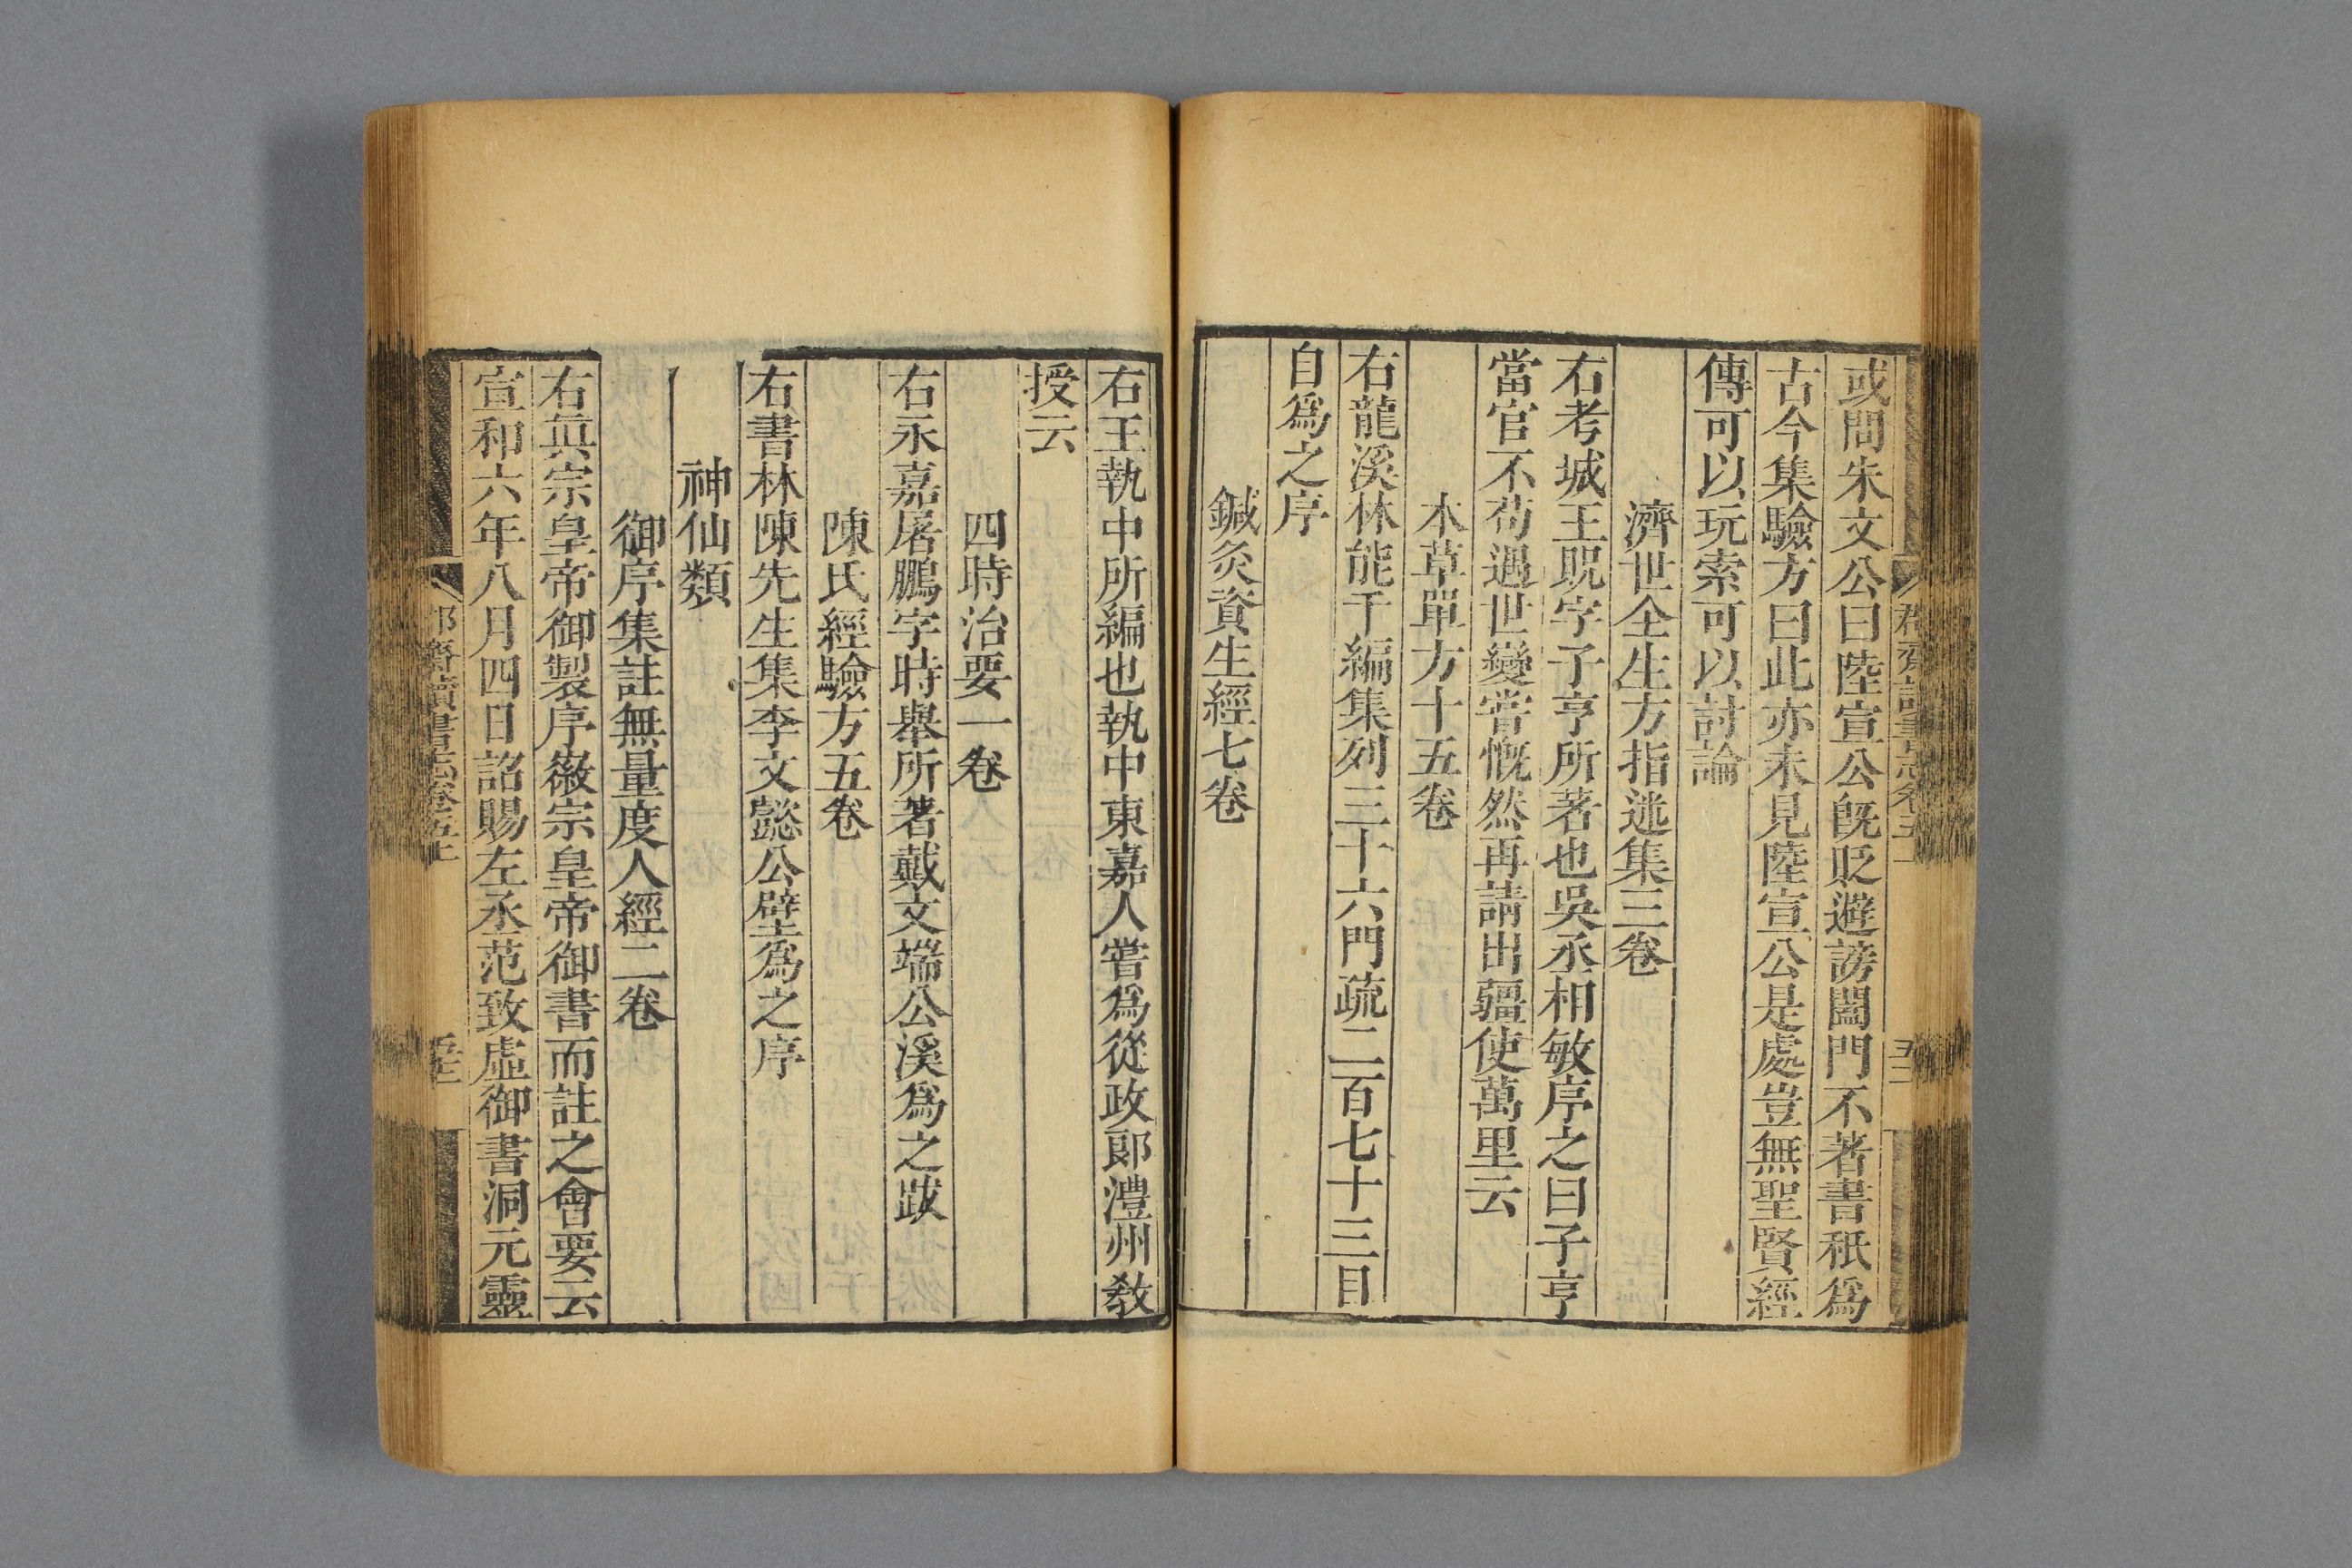 或問朱文公曰陸宣公旣貶避謗闔門不著書秖爲
古今集驗方曰此亦未見陸宣公是處豈無聖賢經
傳可以玩索可以討論
濟世全生方指迷集三卷
右考城王貺字子亨所著也吳丞相敏序之曰子亨
當官不苟遇世變嘗慨然再請出疆使萬里云
本草單方十五卷
右龍溪林能千編集列三十六門疏二百七十三目
自爲之序
鍼灸資生經七卷
右王執中所編也執中東嘉人嘗爲從政郞澧州敎
授云
四時治要一卷
右永嘉屠鵬字時舉所著戴文端公溪爲之跋
陳氏經驗方五卷
右書林陳先生集李文懿公壁爲之序
神仙類
御序集註無量度人經二卷
右眞宗皇帝御製序徽宗皇帝御書而註之會要云
宣和六年八月四日詔賜左丞范致虛御書洞元靈
郡齋讀書志卷五上